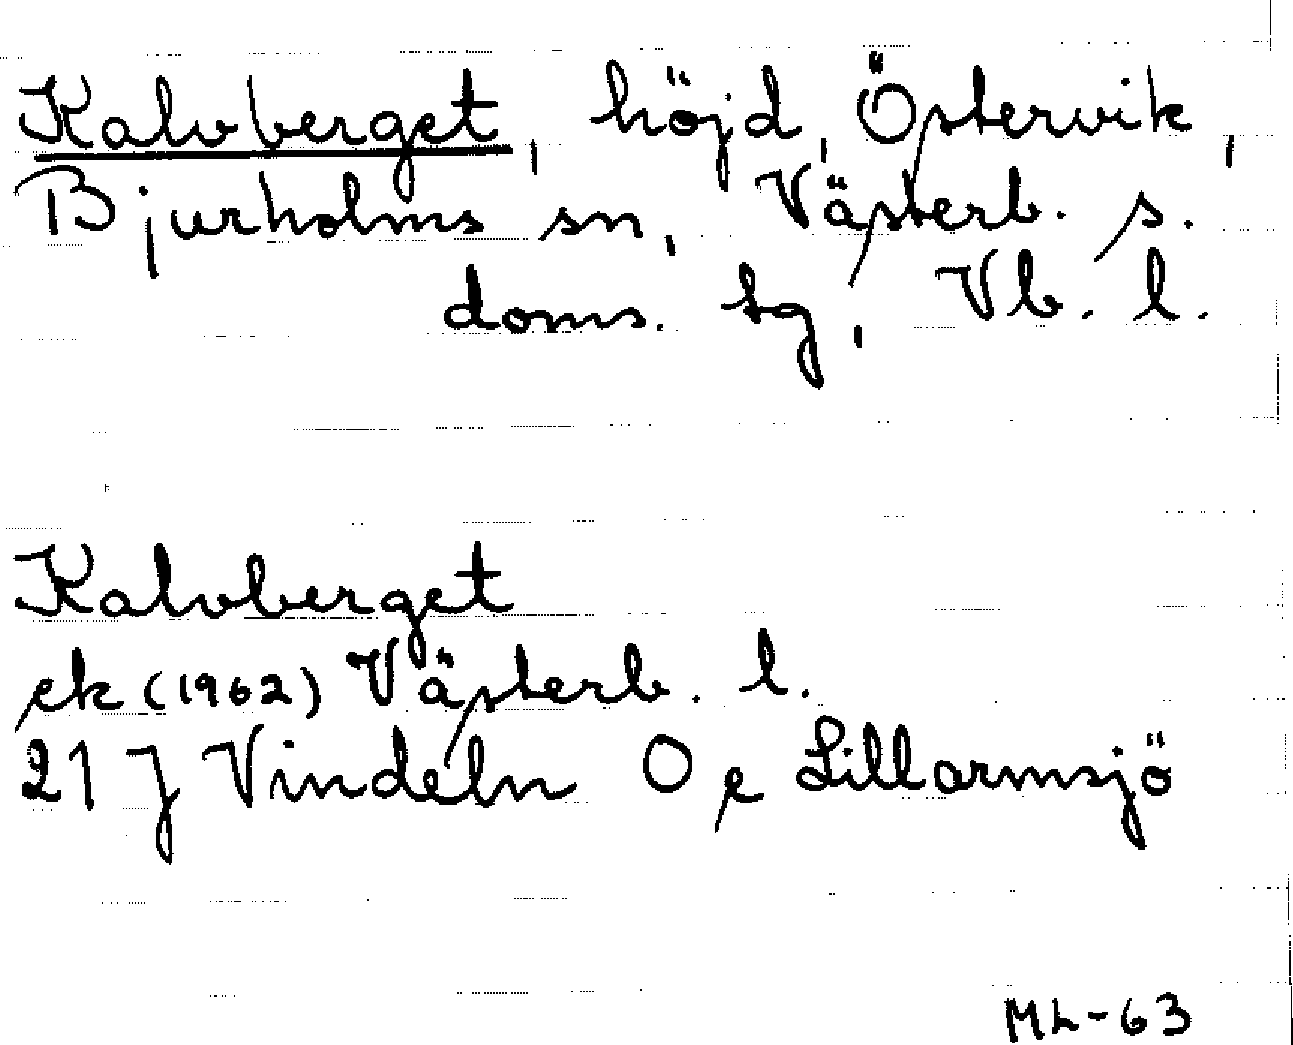 Kalvberget, höjd, Östervik,
Bjurholms sn, Västerb. s.
doms. tg, Vb. l.
Kalvberget
ek (1962) Västerb. l.
21 J Vindeln O e Lillarmsjö
ML-63